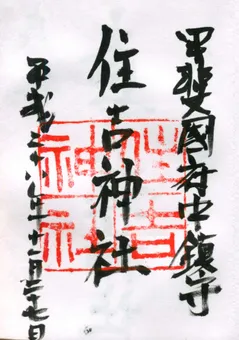 甲斐國府中鎮守
住吉神社
平成二十六年十二月二十七日
住吉神社